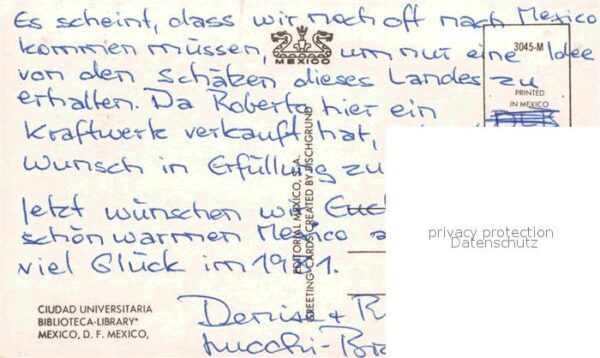 Es scheint, dass wir noch oft nach Mexico
kommen müssen, um nur eine Idee
von den Schätzen dieses Landes zu
erhalten. Da Roberto hier ein
Kraftwerk verkauft hat,
Wunsch in Erfüllung zu
Jetzt wünschen wir Euch
schön warmen Mexico
viel Glück im 1981.
Denise +
MEXICO
3045-M
PRINTED
IN MEXICO
EDITORIAL MEXICO, S.A.
GREETING CARDS CREATED BY FISCHGRUND
privacy protection
Datenschutz
CIUDAD UNIVERSITARIA
BIBLIOTECA-LIBRARY"
MEXICO, D. F. MEXICO,